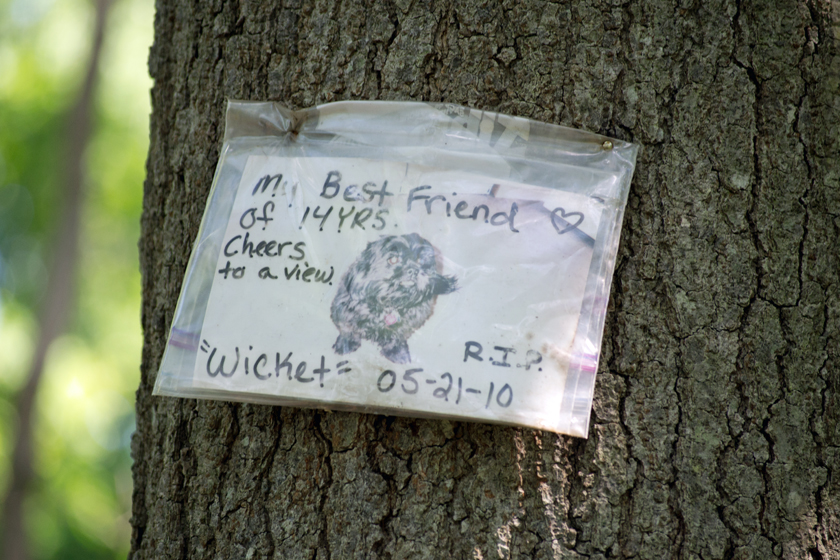 My Best Friend ♡
of 14YRS.
Cheers
to a view.
"Wicket"
R.I.P.
05-21-10